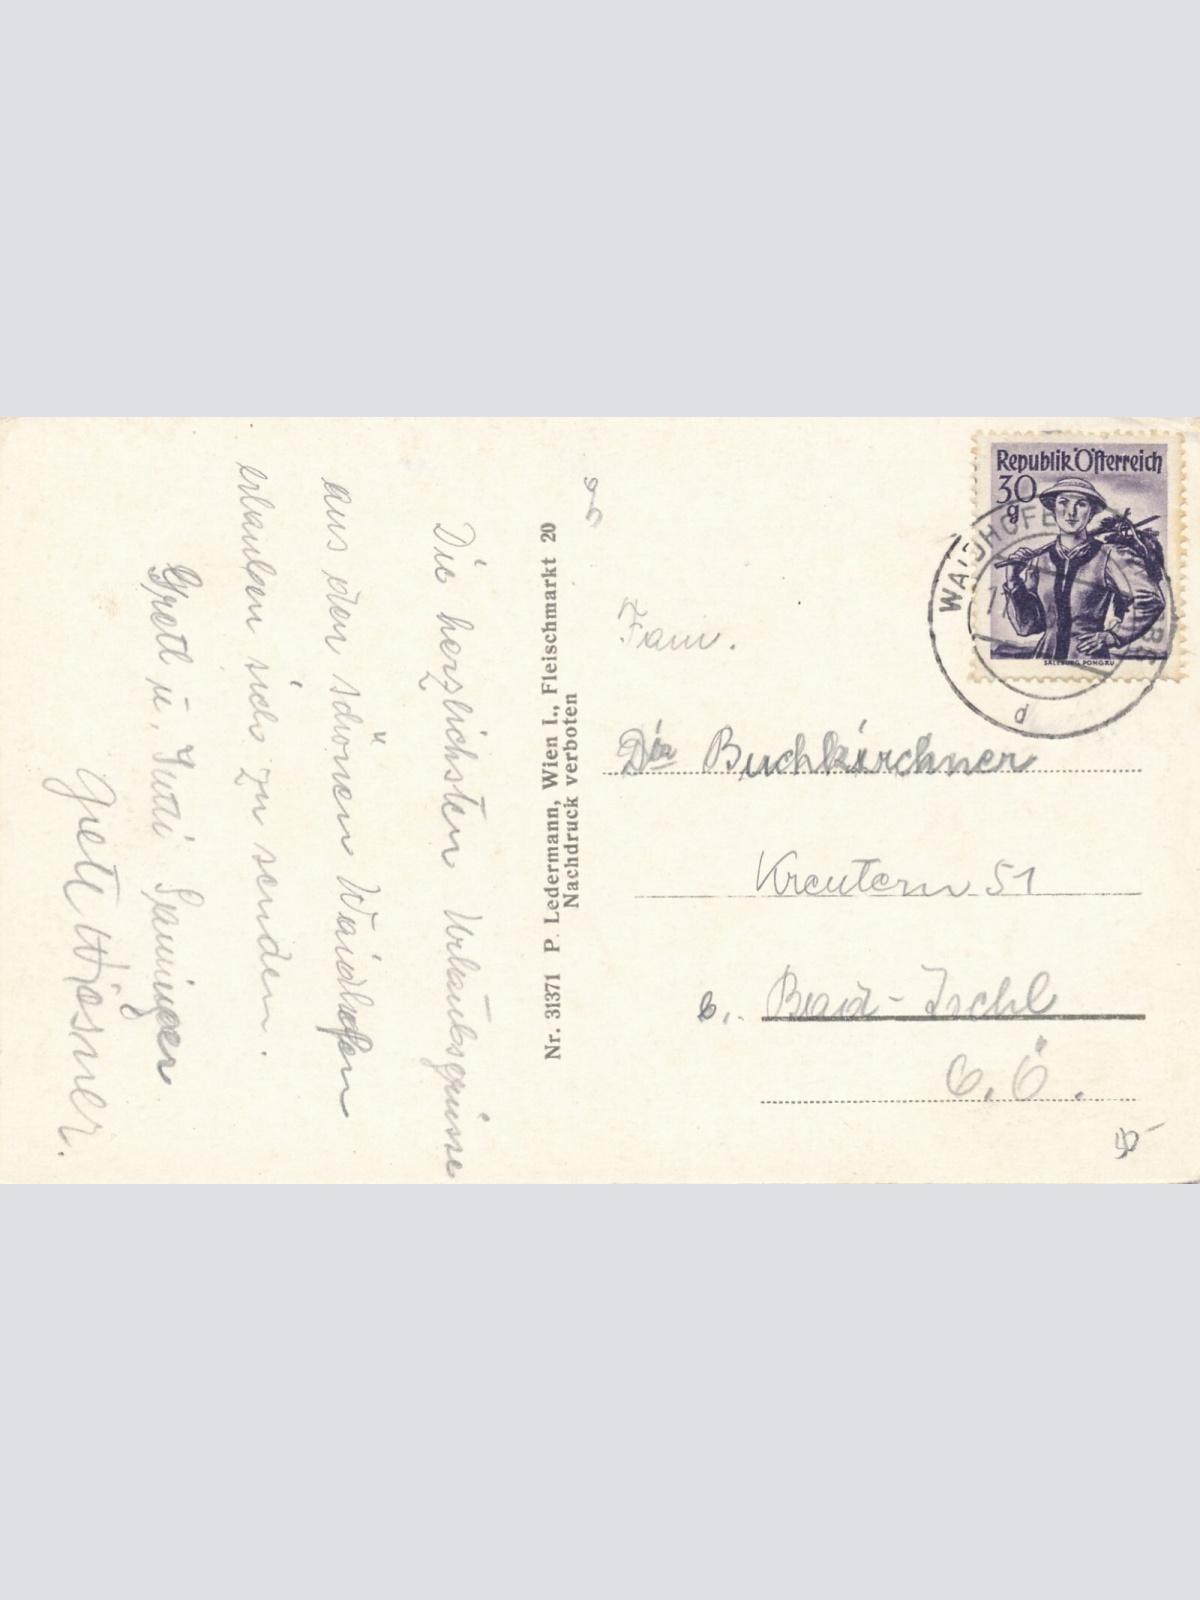 Die herzlichsten Urlaubsgrüsse
aus den schönen Waidhofen
erlauben sich zu senden.
Gretl u. Jutti Saminger
Grete Hösner.
Nr. 31371 P. Ledermann, Wien I., Fleischmarkt 20
Nachdruck verboten
Republik Österreich
30
g
SALZBURG PONGAU
WAIDHOFEN
YBBS
d
Fam.
Dir Buchkirchner
Kreutern 51
b. Bad-Ischl
O.Ö.